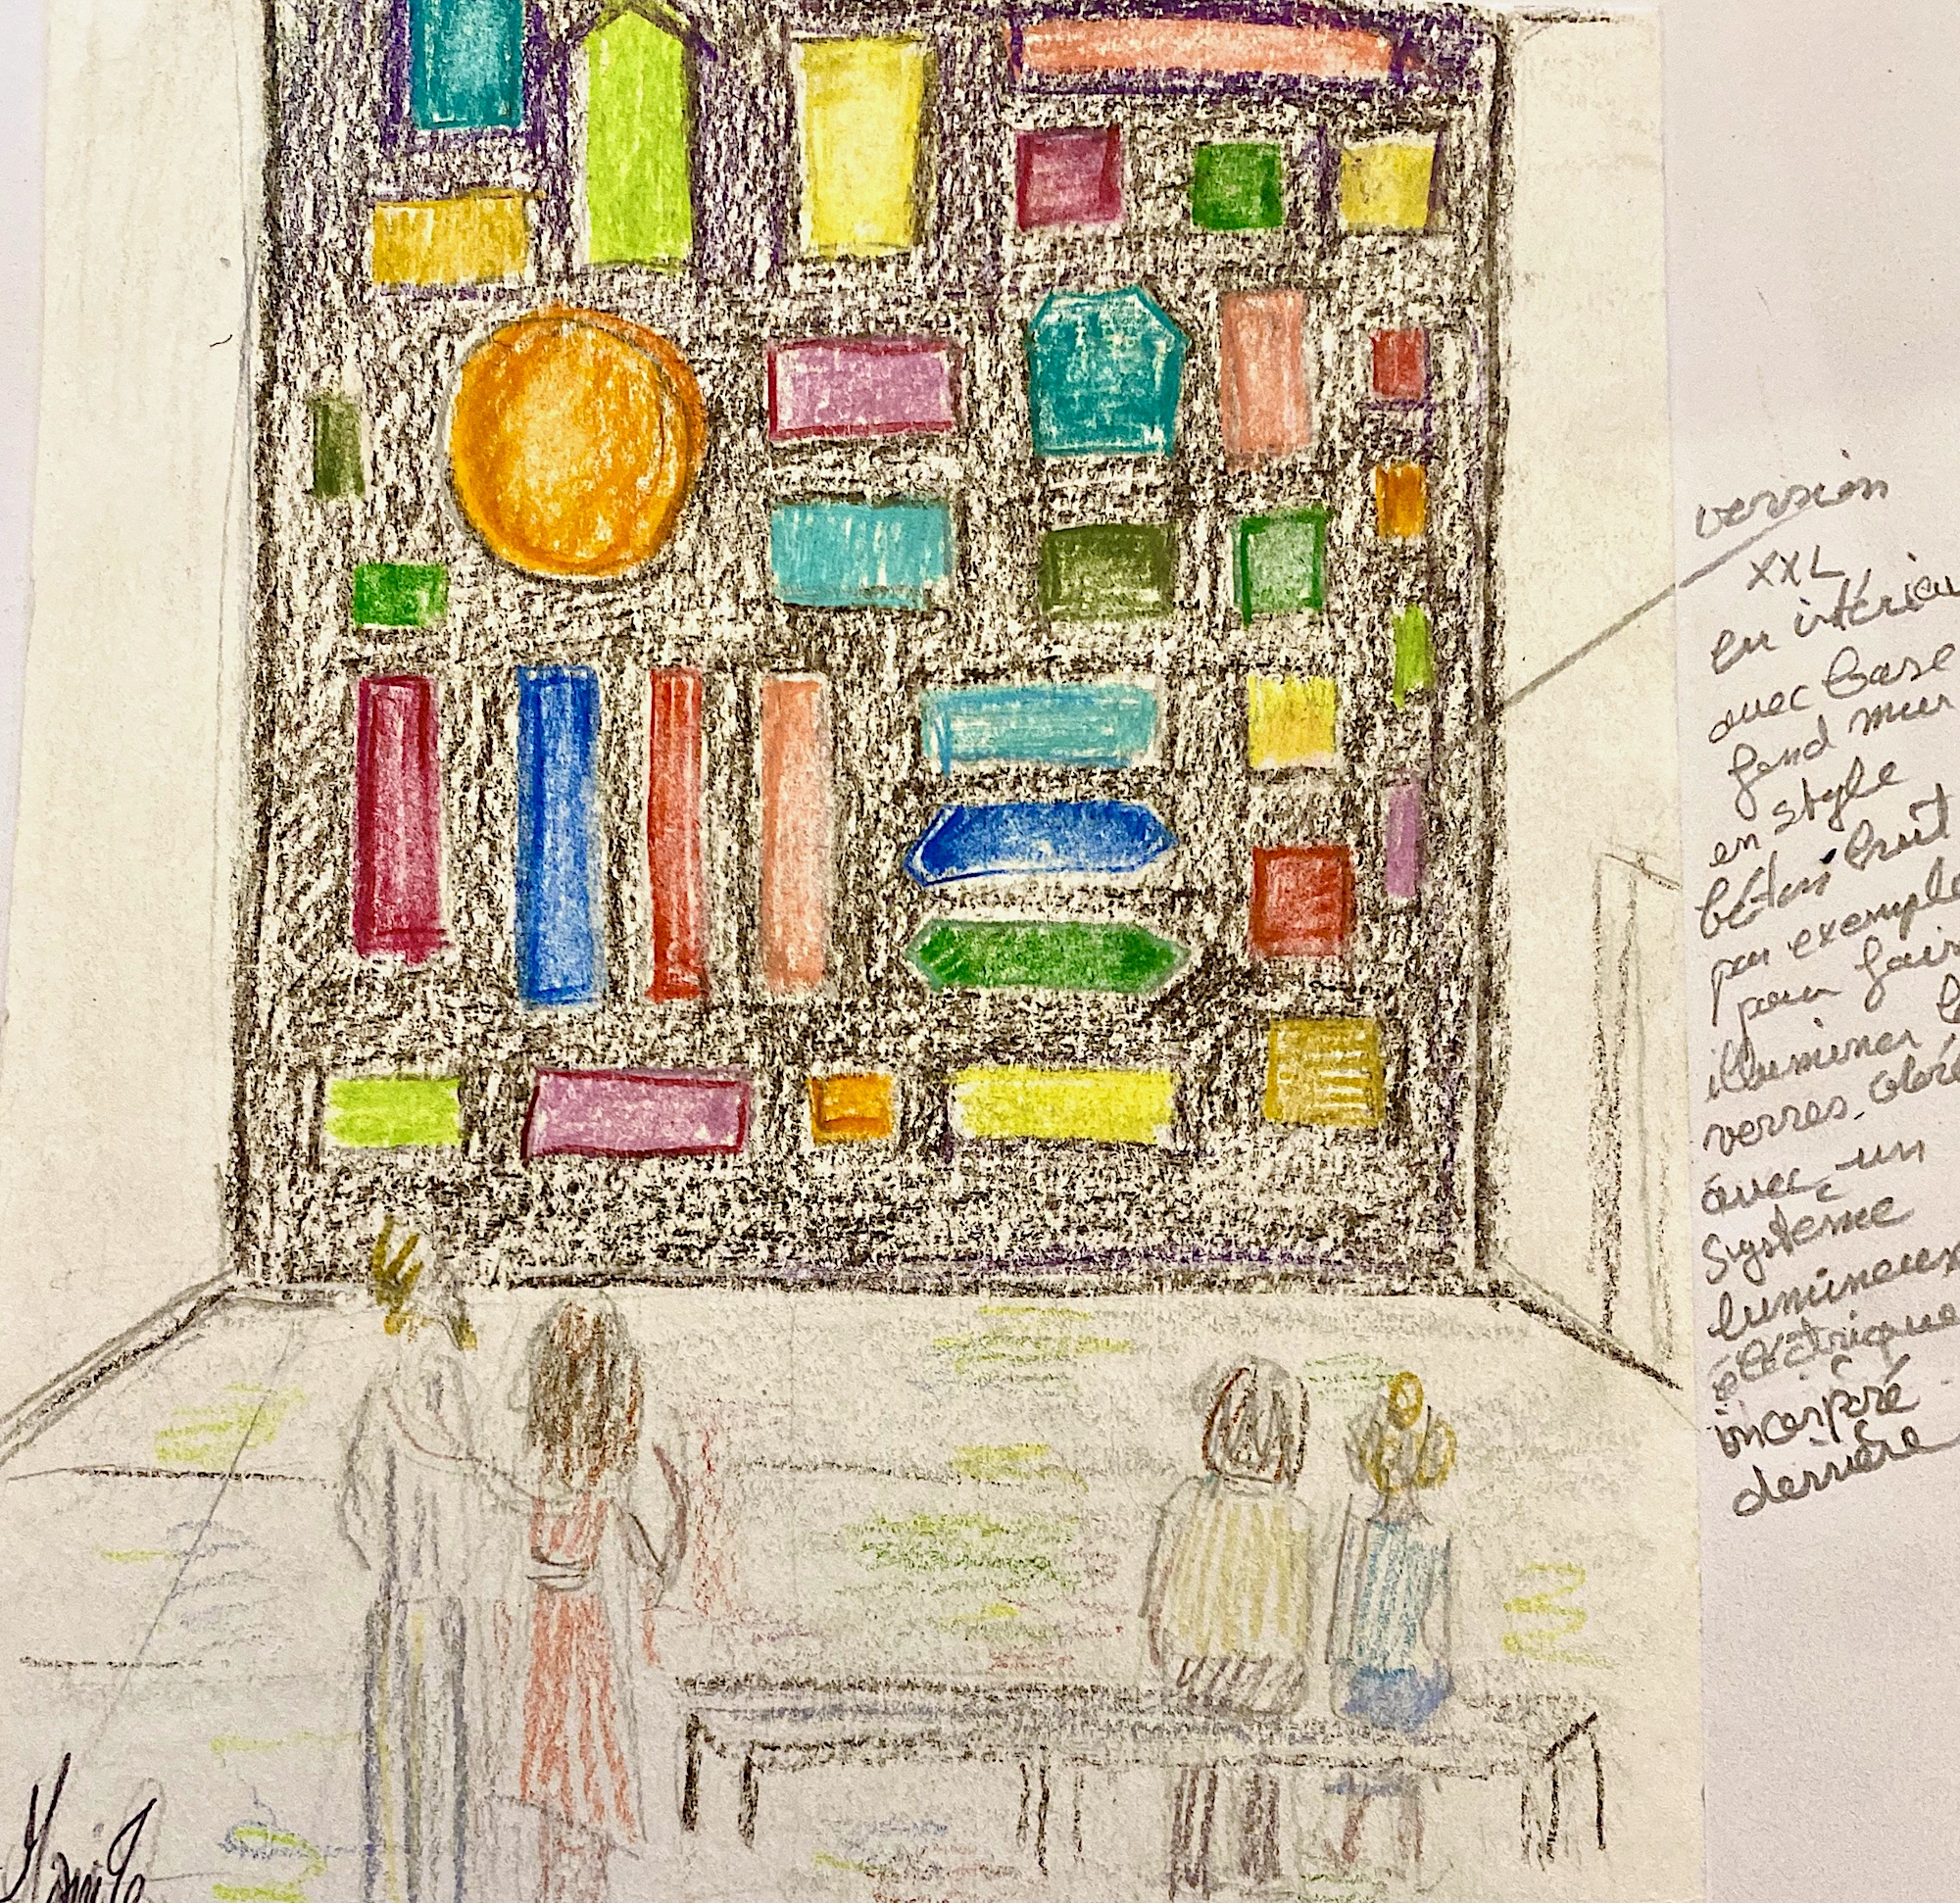 version
XXL
en intérieu
avec base
fond mur
en style
béton brut
par exemple
pour fair
illuminer l
verres coloré
avec un
système
lumineux
éléctrique
incorporé
derrière
M